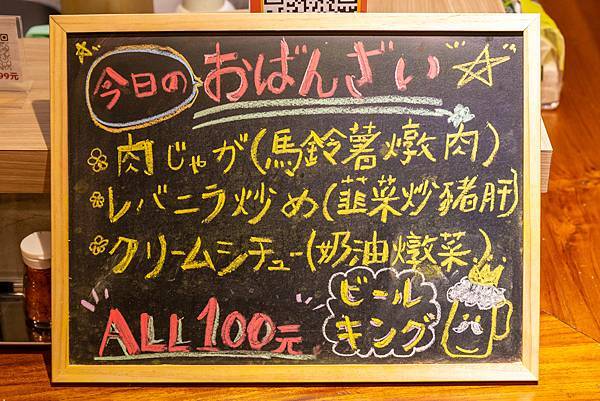 今日の おばんざい
肉じゃが(馬鈴薯燉肉)
レバニラ炒め(韮菜炒豬肝)
クリームシチュー(奶油燉菜)
ALL 100元
ビール
キング
99元